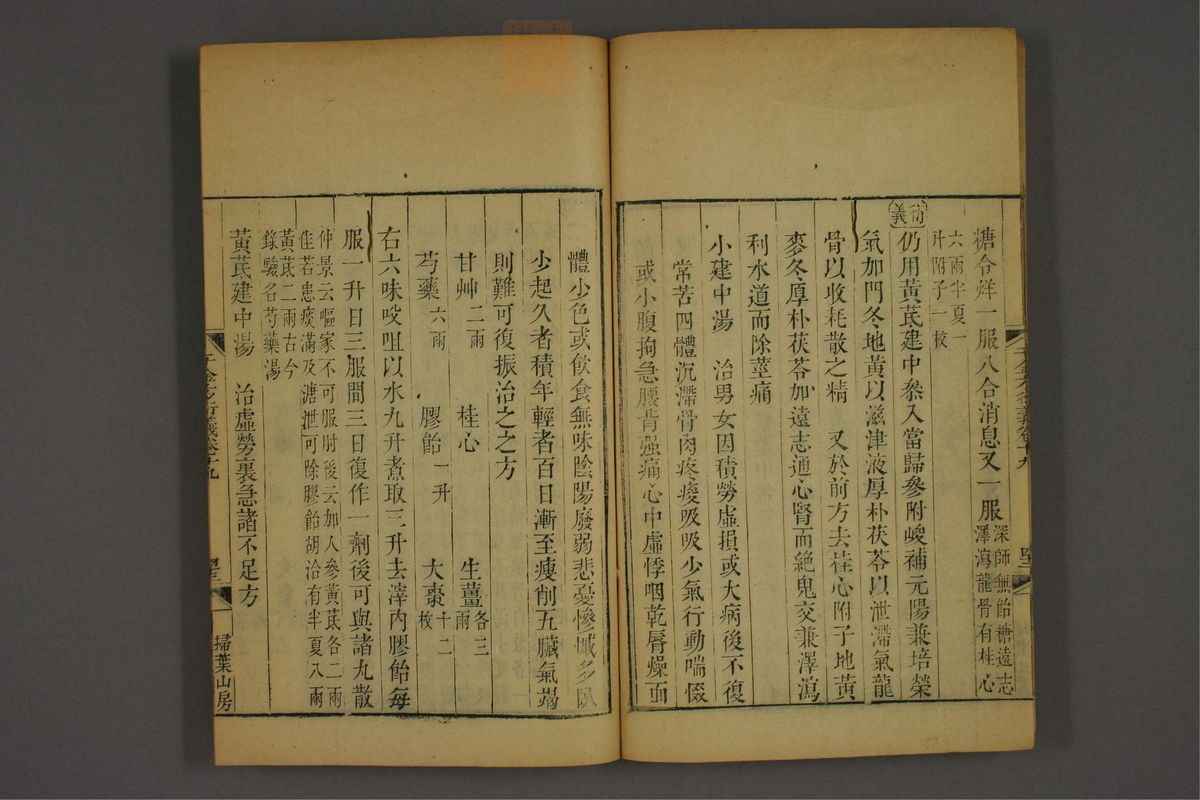 糖令烊一服八合消息又一服深師無飴糖遠志
澤瀉龍骨有桂心
六兩半夏一
升附子一枚
衍義
仍用黃芪建中叅入當歸參附峻補元陽兼培榮
氣加門冬地黃以滋津液厚朴茯苓以泄滯氣龍
骨以收耗散之精　又於前方去桂心附子地黃
麥冬厚朴茯苓加遠志通心腎而絶鬼交兼澤瀉
利水道而除莖痛
小建中湯　治男女因積勞虛損或大病後不復
常苦四體沉滯骨肉疼痠吸吸少氣行動喘惙
或小腹拘急腰背强痛心中虛悸咽乾唇燥面
體少色或飲食無味陰陽廢弱悲憂慘慽多臥
少起久者積年輕者百日漸至瘦削五臟氣竭
則難可復振治之之方
甘艸二兩　桂心　生薑各三兩
芍藥六兩　膠飴一升　大棗十二枚
右六味㕮咀以水九升煮取三升去滓内膠飴每
服一升日三服間三日復作一劑後可與諸丸散
仲景云嘔家不可服肘後云加人參黃芪各二兩
佳若患痰滿及溏泄可除膠飴胡洽有半夏八兩
黃芪二兩古今
錄驗名芍藥湯
黃芪建中湯　治虛勞裏急諸不足方
千金方衍義卷十九
掃葉山房